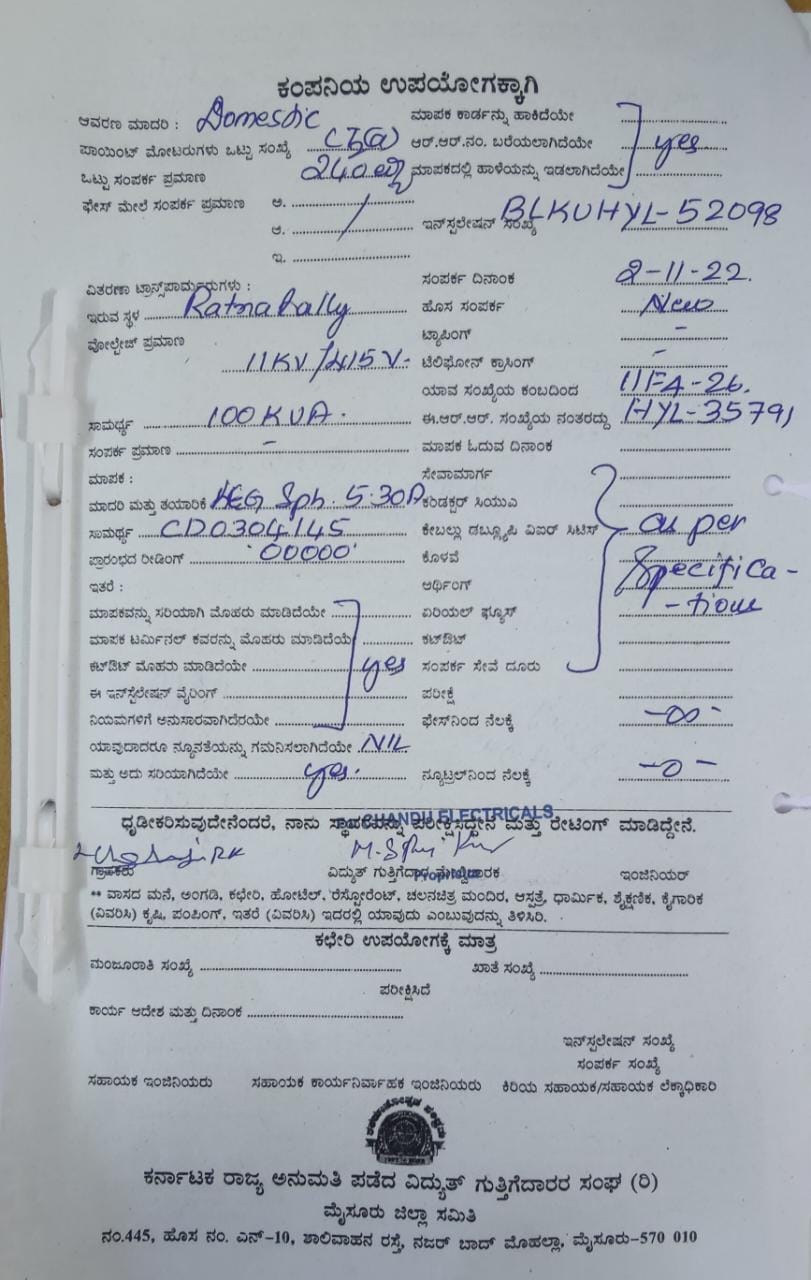 ಕಂಪನಿಯ ಉಪಯೋಗಕ್ಕಾಗಿ
ಆವರಣ ಮಾದರಿ : Domestic ಮಾಪಕ ಕಾರ್ಡನ್ನು ಹಾಕಿದೆಯೇ
ಪಾಯಿಂಟ್ ಮೋಟರುಗಳು ಒಟ್ಟು ಸಂಖ್ಯೆ ಆರ್.ಆರ್.ನಂ. ಬರೆಯಲಾಗಿದೆಯೇ yes
ಒಟ್ಟು ಸಂಪರ್ಕ ಪ್ರಮಾಣ 240 ಮಾಪಕದಲ್ಲಿ ಹಾಳೆಯನ್ನು ಇಡಲಾಗಿದೆಯೇ
ಫೇಸ್ ಮೇಲೆ ಸಂಪರ್ಕ ಪ್ರಮಾಣ ಅ.
ಆ. ಇನ್‌ಸ್ಪಲೇಷನ್ ಸಂಖ್ಯೆ BLKUHYL-52098
ಇ.
ವಿತರಣಾ ಟ್ರಾನ್ಸ್‌ಪಾರ್ಮರುಗಳು : ಸಂಪರ್ಕ ದಿನಾಂಕ 2-11-22.
ಇರುವ ಸ್ಥಳ Ratnahally ಹೊಸ ಸಂಪರ್ಕ New
ವೋಲ್ಟೇಜ್ ಪ್ರಮಾಣ ಟ್ಯಾಪಿಂಗ್ -
11KV/415V- ಟೆಲಿಫೋನ್ ಕ್ರಾಸಿಂಗ್ -
ಯಾವ ಸಂಖ್ಯೆಯ ಕಂಬದಿಂದ 11FA-26.
ಸಾಮರ್ಥ್ಯ 100KVA. ಈ.ಆರ್.ಆರ್. ಸಂಖ್ಯೆಯ ನಂತರದ್ದು HYL-35791
ಸಂಪರ್ಕ ಪ್ರಮಾಣ - ಮಾಪಕ ಓದುವ ದಿನಾಂಕ
ಮಾಪಕ : ಸೇವಾಮಾರ್ಗ
ಮಾದರಿ ಮತ್ತು ತಯಾರಿಕೆ Sph. 5-30A ಕಂಡಕ್ಟರ್ ಸಿಯುವಿ
ಸಾಮರ್ಥ್ಯ CD0304145 ಕೇಬಲ್ಲು ಡಬ್ಲ್ಯೂಪಿ ವಿಐರ್ ಸಿಟಿಸ್ as per
ಪ್ರಾರಂಭದ ರೀಡಿಂಗ್ '00000' ಕೊಳವೆ Specifica-
ಇತರೆ : ಆರ್ಥಿಂಗ್
ಮಾಪಕವನ್ನು ಸರಿಯಾಗಿ ಮೊಹರು ಮಾಡಿದೆಯೇ ಏರಿಯಲ್ ಫ್ಯೂಸ್ -tions
ಮಾಪಕ ಟರ್ಮಿನಲ್ ಕವರನ್ನು ಮೊಹರು ಮಾಡಿದೆಯೆ ಕಟ್‌ಔಟ್
ಕಟ್‌ಔಟ್ ಮೊಹರು ಮಾಡಿದೆಯೇ yes ಸಂಪರ್ಕ ಸೇವೆ ದೂರು
ಈ ಇನ್‌ಸ್ಟೆಲೇಷನ್ ವೈರಿಂಗ್ ಪರೀಕ್ಷೆ
ನಿಯಮಗಳಿಗೆ ಅನುಸಾರವಾಗಿದೆರಯೇ ಫೇಸ್‌ನಿಂದ ನೆಲಕ್ಕೆ -∞-
ಯಾವುದಾದರೂ ನ್ಯೂನತೆಯನ್ನು ಗಮನಿಸಲಾಗಿದೆಯೇ NIL
ಮತ್ತು ಅದು ಸರಿಯಾಗಿದೆಯೇ yes. ನ್ಯೂಟ್ರಲ್‌ನಿಂದ ನೆಲಕ್ಕೆ -0-
CHANDU ELECTRICALS
ಧೃಡೀಕರಿಸುವುದೇನೆಂದರೆ, ನಾನು ಸ್ಥಾವರವನ್ನು ಪರೀಕ್ಷಿಸಿದ್ದೇನೆ ಮತ್ತು ರೇಟಿಂಗ್ ಮಾಡಿದ್ದೇನೆ.
ಗ್ರಾಹಕರು ವಿದ್ಯುತ್ ಗುತ್ತಿಗೆದಾರ ಮೇಲ್ವಿಚಾರಕ ಇಂಜಿನಿಯರ್
Proprietor
** ವಾಸದ ಮನೆ, ಅಂಗಡಿ, ಕಛೇರಿ, ಹೋಟೆಲ್, ರೆಸ್ಟೋರೆಂಟ್, ಚಲನಚಿತ್ರ ಮಂದಿರ, ಆಸ್ಪತ್ರೆ, ಧಾರ್ಮಿಕ, ಶೈಕ್ಷಣಿಕ, ಕೈಗಾರಿಕ
(ವಿವರಿಸಿ) ಕೃಷಿ, ಪಂಪಿಂಗ್, ಇತರೆ (ವಿವರಿಸಿ) ಇದರಲ್ಲಿ ಯಾವುದು ಎಂಬುವುದನ್ನು ತಿಳಿಸಿರಿ.
ಕಛೇರಿ ಉಪಯೋಗಕ್ಕೆ ಮಾತ್ರ
ಮಂಜೂರಾತಿ ಸಂಖ್ಯೆ ಖಾತೆ ಸಂಖ್ಯೆ
ಪರೀಕ್ಷಿಸಿದೆ
ಕಾರ್ಯ ಆದೇಶ ಮತ್ತು ದಿನಾಂಕ
ಇನ್‌ಸ್ಪಲೇಷನ್ ಸಂಖ್ಯೆ
ಸಂಪರ್ಕ ಸಂಖ್ಯೆ
ಸಹಾಯಕ ಇಂಜಿನಿಯರು ಸಹಾಯಕ ಕಾರ್ಯನಿರ್ವಾಹಕ ಇಂಜಿನಿಯರು ಕಿರಿಯ ಸಹಾಯಕ/ಸಹಾಯಕ ಲೆಕ್ಕಾಧಿಕಾರಿ
ಕರ್ನಾಟಕ ರಾಜ್ಯ ಅನುಮತಿ ಪಡೆದ ವಿದ್ಯುತ್ ಗುತ್ತಿಗೆದಾರರ ಸಂಘ (ರಿ)
ಮೈಸೂರು ಜಿಲ್ಲಾ ಸಮಿತಿ
ನಂ.445, ಹೊಸ ನಂ. ಎನ್-10, ಶಾಲಿವಾಹನ ರಸ್ತೆ, ನಜರ್ ಬಾದ್ ಮೊಹಲ್ಲಾ, ಮೈಸೂರು-570 010